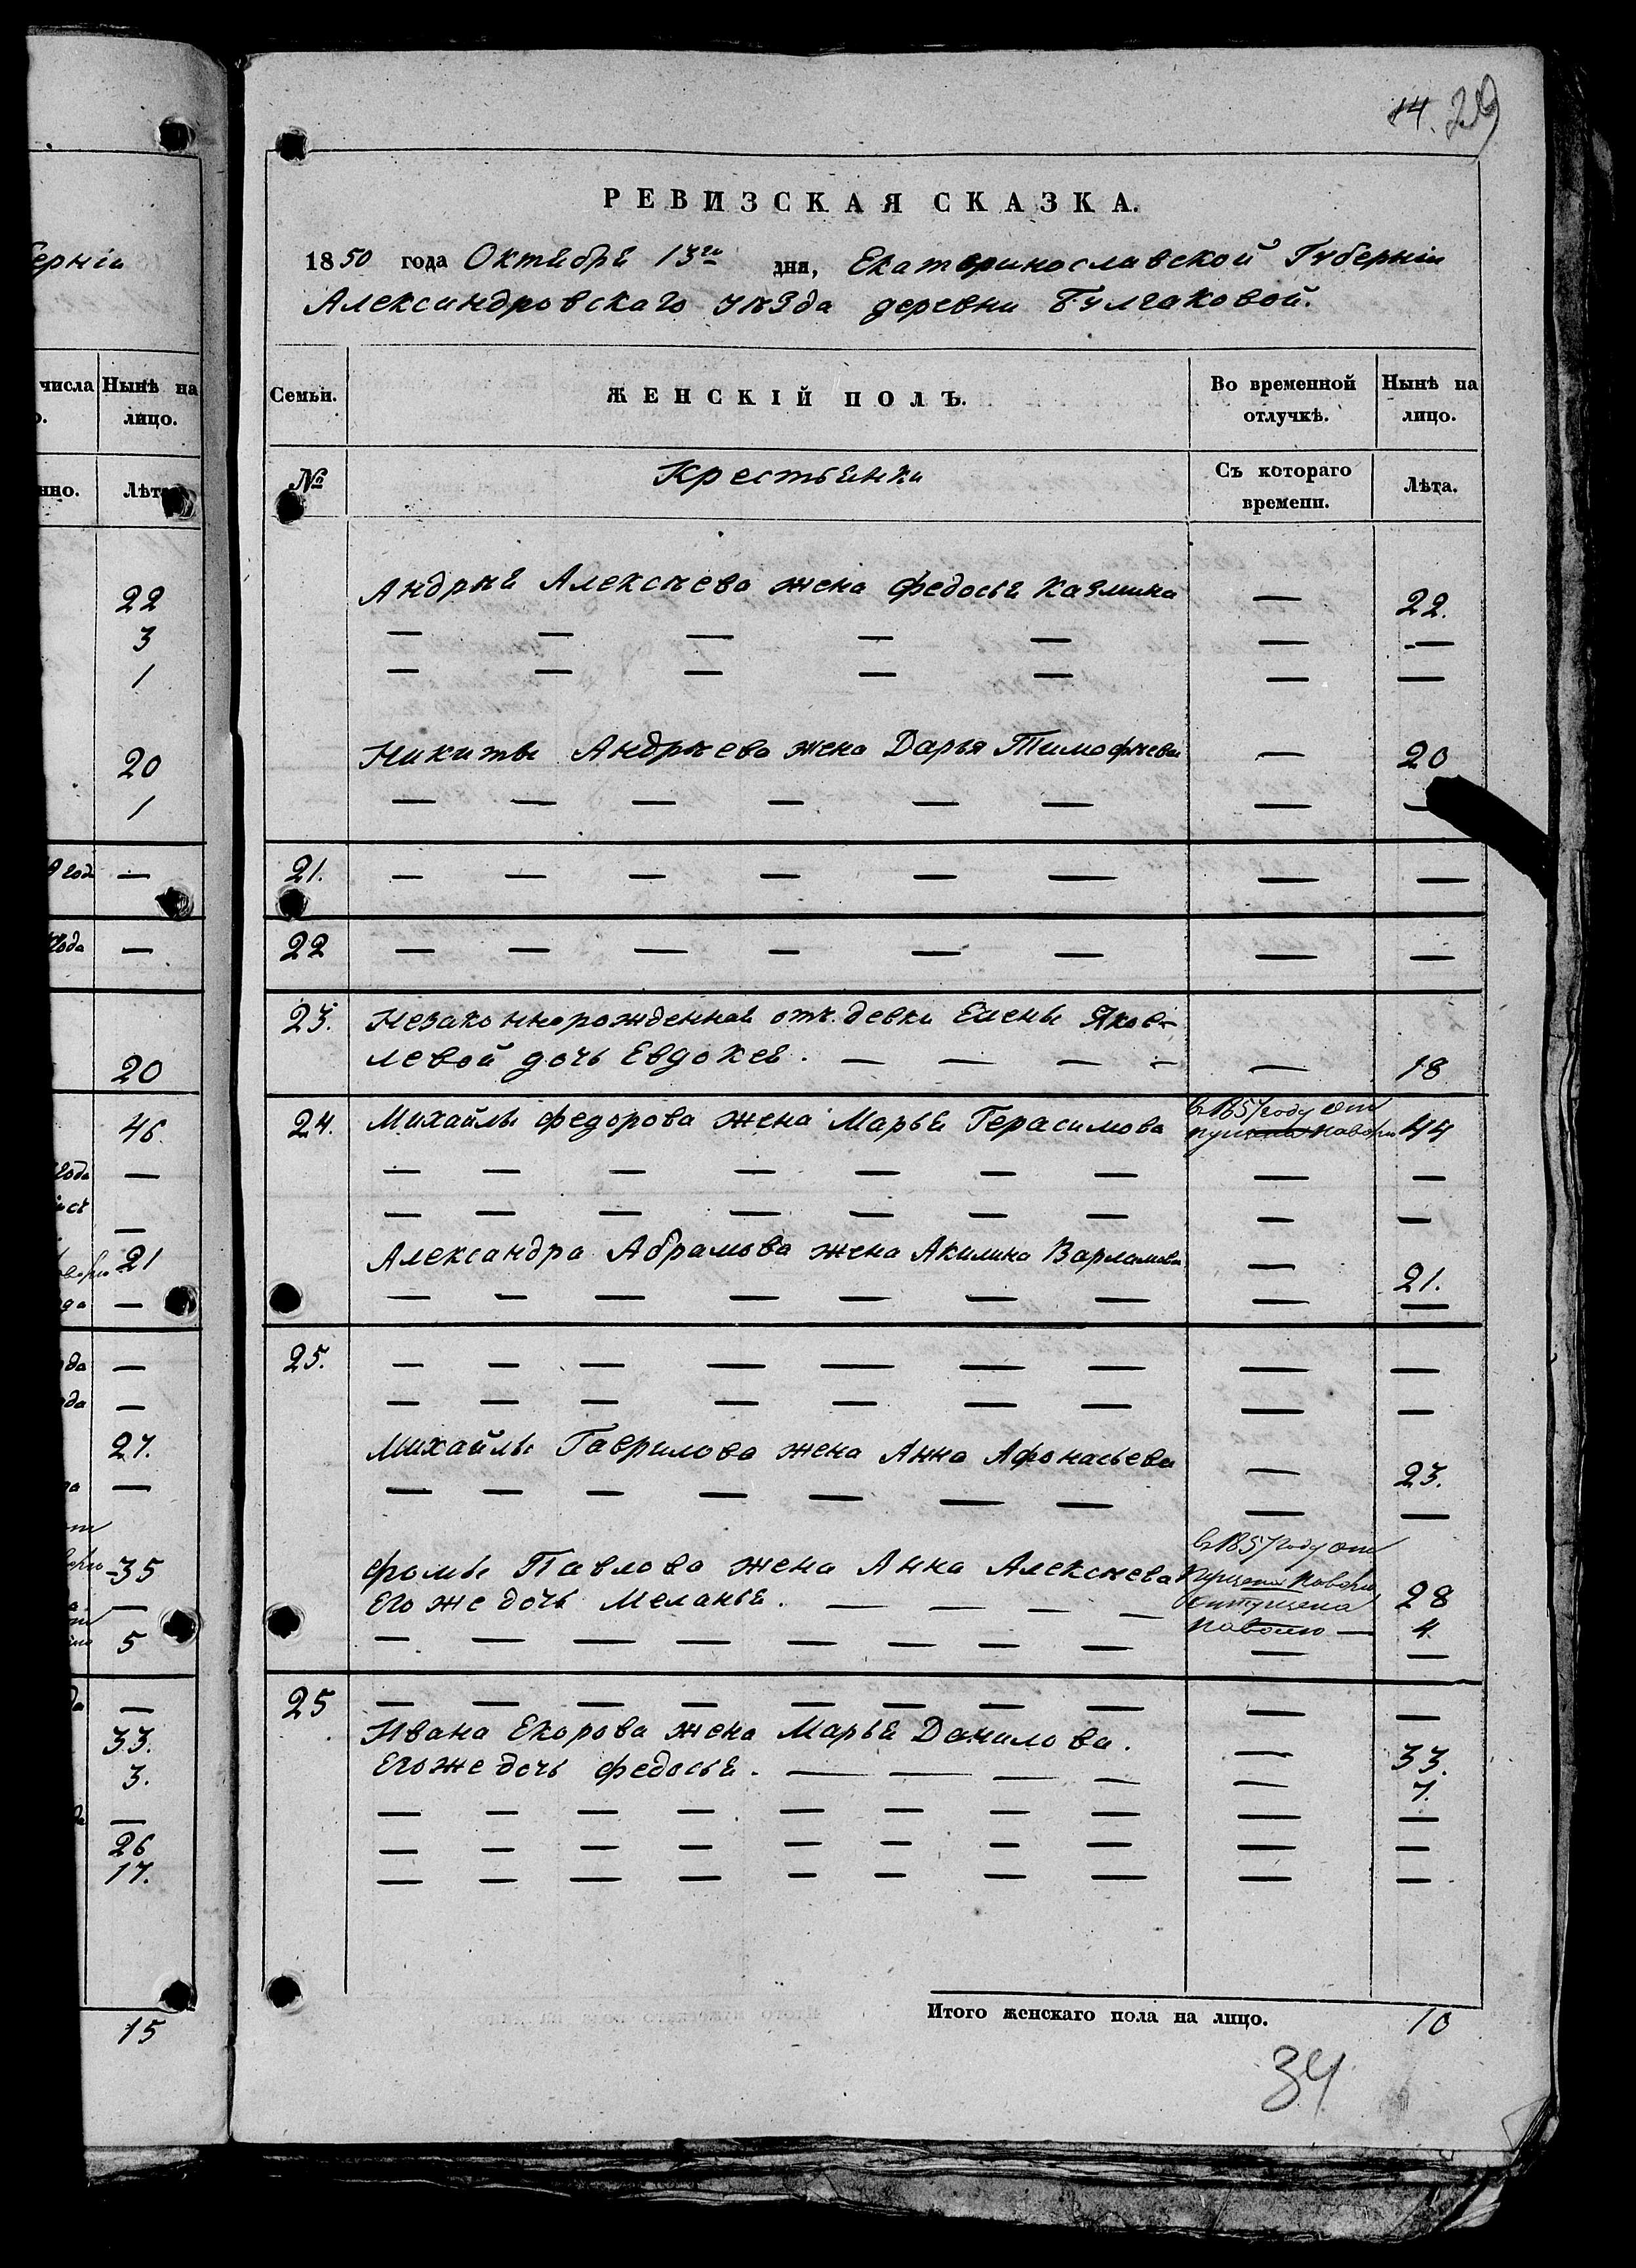 14. 29
РЕВИЗСКАЯ СКАЗКА.
1850 года Октября 13го дня, Екатеринославской Губерніи
Александровскаго уѣзда деревни Булгаковой.
Семьи.
ЖЕНСКІЙ ПОЛЪ.
Во временной отлучкѣ.
Нынѣ на лицо.
№
Крестьянки
Съ котораго времени.
Лѣта.
Андрѣя Алексѣева жена Федосья Казмина — 22.
— — — — — — —
— — — — — — —
Никиты Андрѣева жена Дарья Тимофѣева — 20
— — — — — — — —
21. — — — — — — — —
22 — — — — — — — —
23. Незаконнорожденная отъ девки Елены Яков-
левой дочь Евдокея. — — — — — 18
24. Михайлы Федорова жена Марья Герасимова в 1857 году от 44
пущена наволю
— — — — — — — — —
— — — — — — — — —
Александра Абрамова жена Акилина Варламова — 21.
— — — — — — — — —
25. — — — — — — — — —
— — — — — — — — —
Михайлы Гаврилова жена Анна Афонасьева — 23.
— — — — — — — — —
Фомы Павлова жена Анна Алексѣева в 1857 году от
пущена наволю 28
Его же дочь Меланья. — — — — отпущена
наволю — 4.
— — — — — — — — — —
25 — — — — — — — — — —
Ивана Екорова жена Марья Данилова. — 33.
Его же дочь Федосья. — — — — — 7.
— — — — — — — — — —
— — — — — — — — — —
— — — — — — — — — —
Итого женскаго пола на лицо. 10
34
берніи
числа
Нынѣ на лицо.
нно.
Лѣта
22
3
1
20
1
года —
года —
20
46.
года —
—
21
да —
да —
да —
27.
—
35
—
5
—
33.
3.
—
26
17.
15